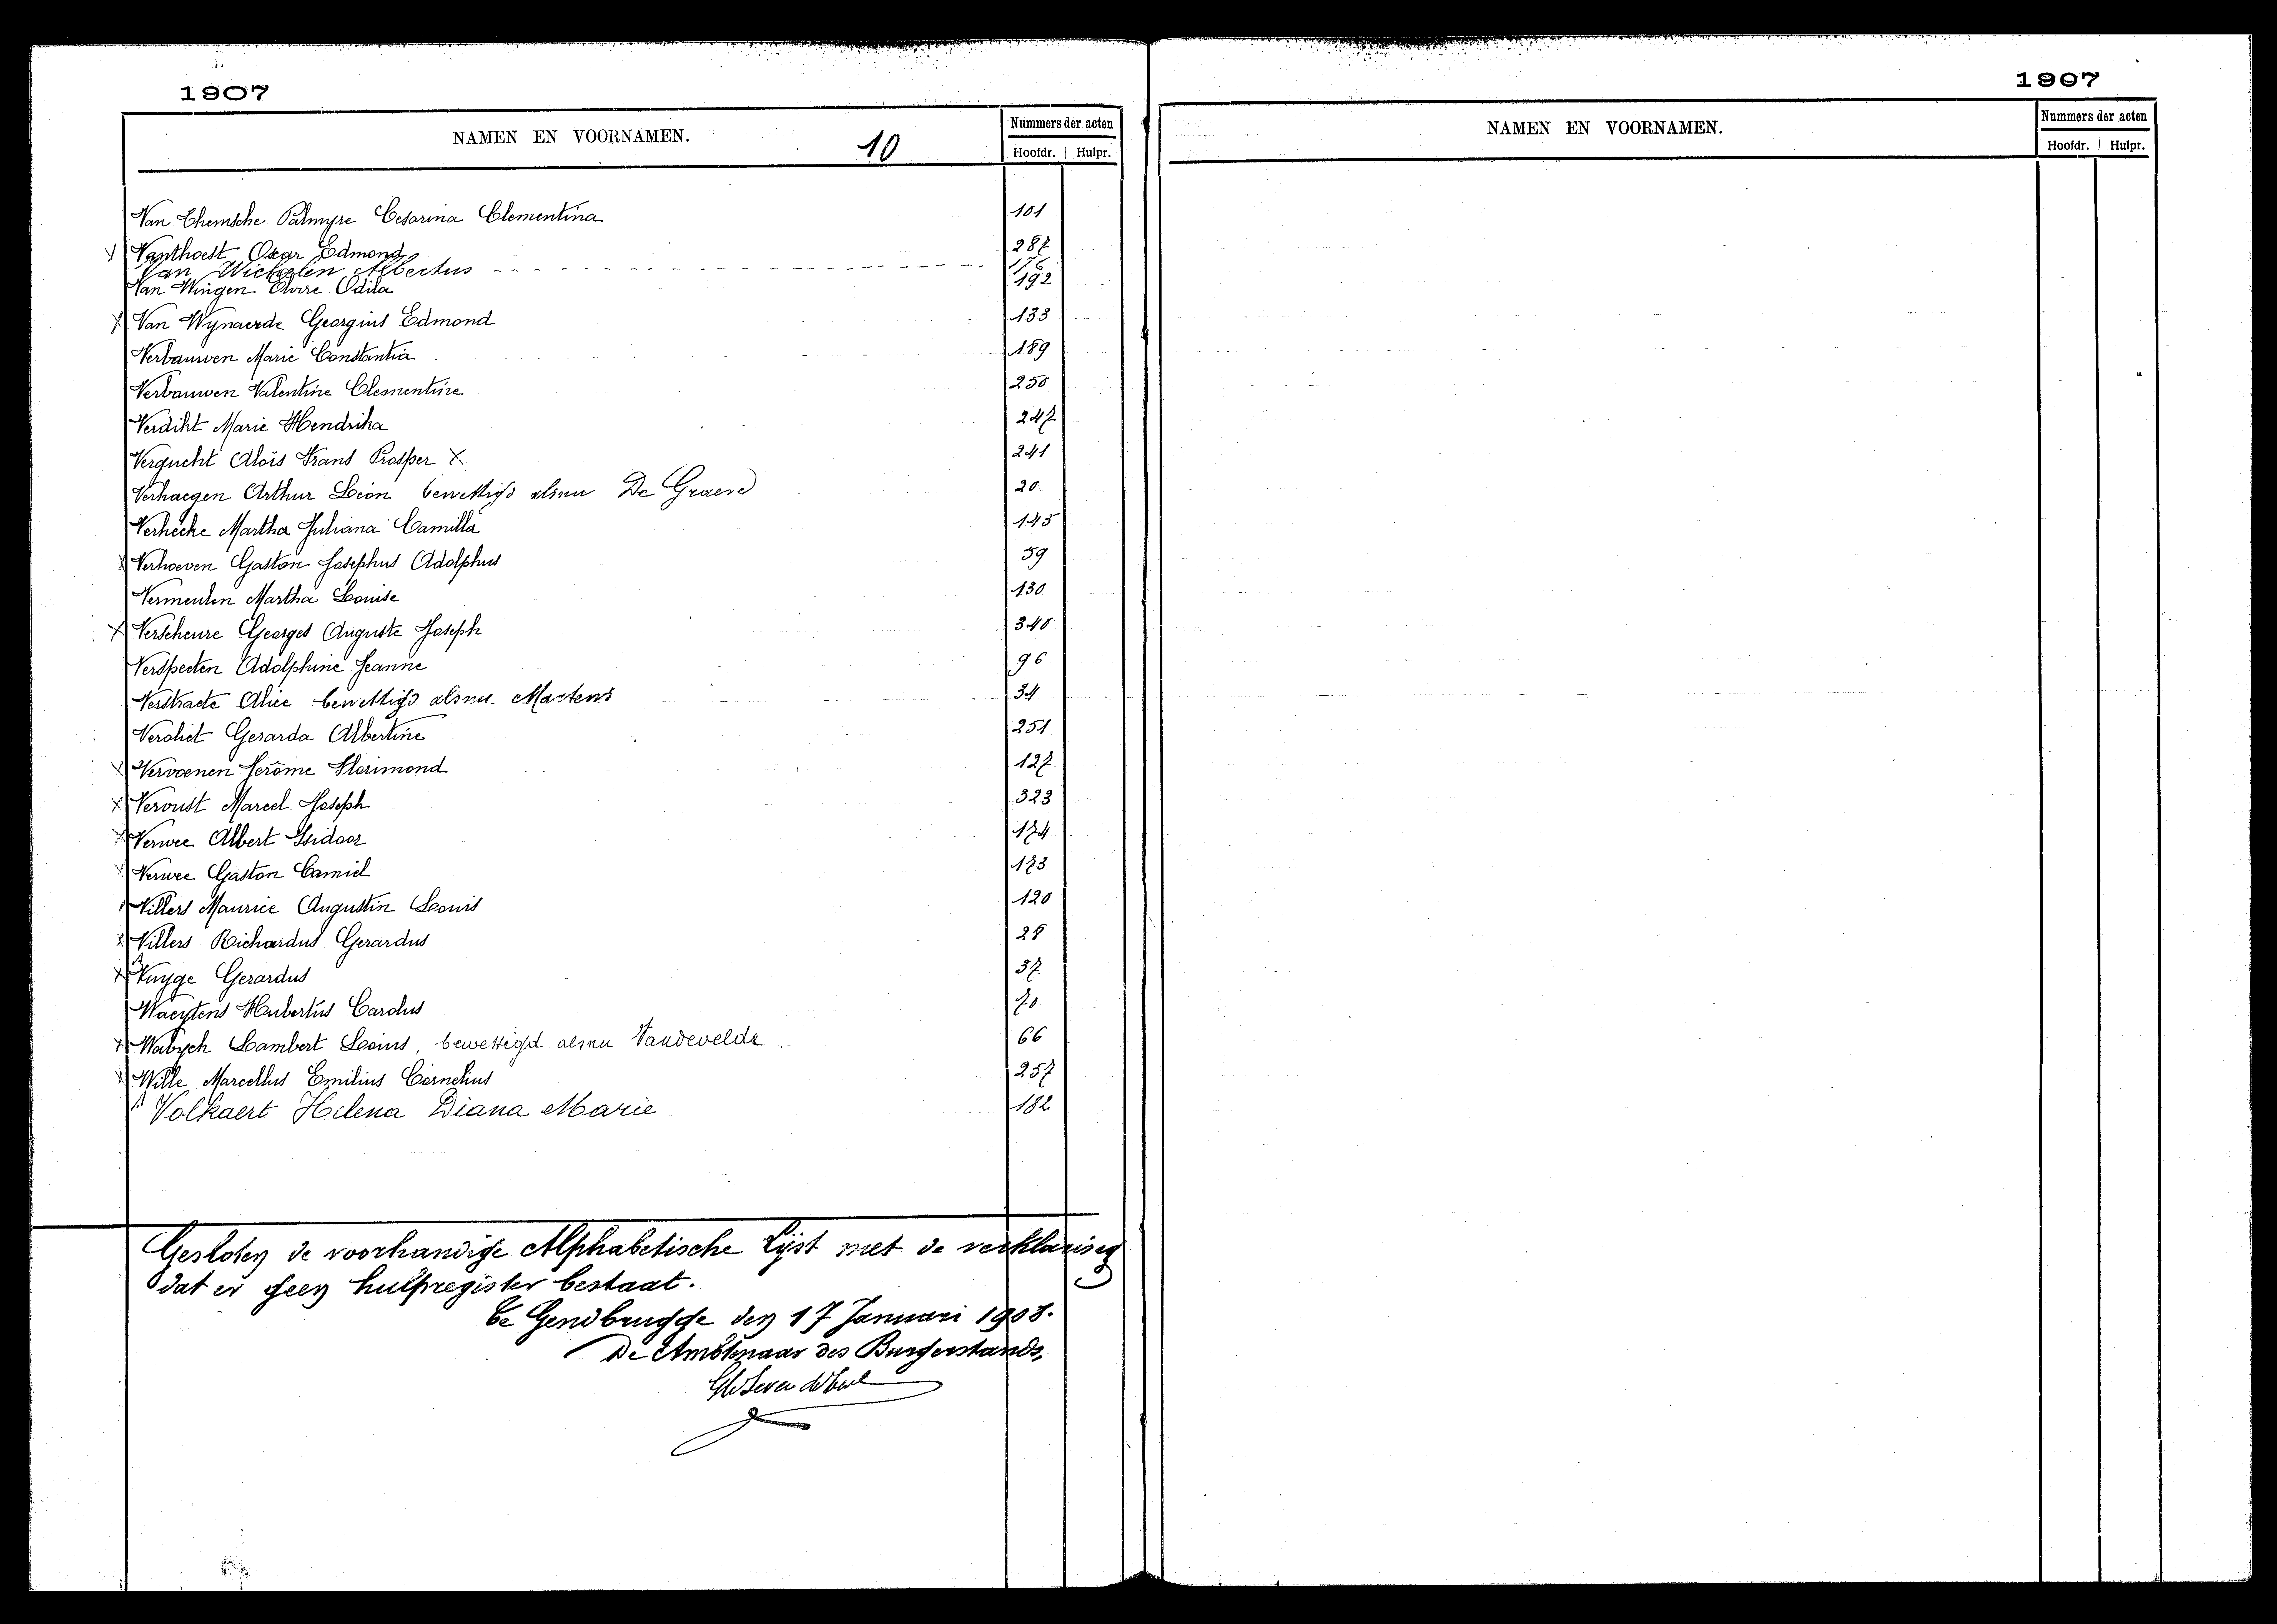 1907
NAMEN EN VOORNAMEN.
10
Nummers der acten
Hoofdr. Hulpr.
Van Themsche Palmyre Cesarina Clementina 101
Vanthoest Oscar Edmond 287
Van Wichelen Albertus 176
Van Wingen Elvire Odila 192
x Van Wynaerde Georgius Edmond 133
Verbauwen Marie Constantia 189
Verbauwen Valentine Clementine 250
Verdikt Marie Hendrika 247
Vergucht Aloïs Frans Prosper x 241
Verhaegen Arthur Leon bewettigd alsnu De Graeve 20
Verhecke Martha Juliana Camilla 145
x Verhoeven Gaston Josephus Adolphus 59
Vermeulen Martha Louise 130
x Verscheure Georges Auguste Joseph 340
Verspecten Adolphine Jeanne 96
Verstraete Alice bewettigd alsnu Martens 34
Vervliet Gerarda Albertine 251
x Vervoenen Jerôme Florimond 127
x Vervust Marcel Joseph 323
x Verwee Albert Isidoor 174
x Verwee Gaston Camiel 173
Villers Maurice Augustin Louis 120
x Villers Richardus Gerardus 28
x Vuyge Gerardus 37
Waeytens Hubertus Carolus 70
x Lambert bewettigd alsnu Vandevelde 66
x Wille Marcellus Emilius Cornelius 257
Volkaert Helena Diana Marie 182
Gesloten de voorhandige Alphabetische Lijst met de verklaring
dat er geen hulpregister bestaat.
te Gendbrugge den 17 Januari 1908.
De Ambtenaar des Burgerstands,
1907
NAMEN EN VOORNAMEN.
Nummers der acten
Hoofdr. Hulpr.